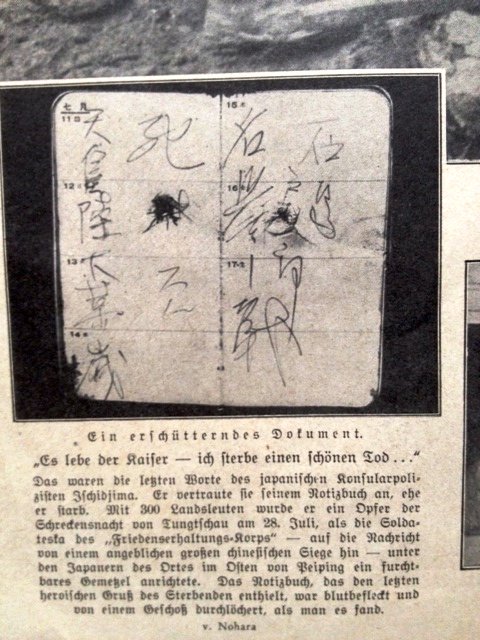 七月
11日
12
13
14
15
16
17
石
名誉ノ戦
死
天皇陛下萬歳
Ein erschütterndes Dokument.
„Es lebe der Kaiser — ich sterbe einen schönen Tod ...“
Das waren die letzten Worte des japanischen Konsularpoli-
zisten Ischidjima. Er vertraute sie seinem Notizbuch an, ehe
er starb. Mit 300 Landsleuten wurde er ein Opfer der
Schreckensnacht von Tungtschau am 28. Juli, als die Solda-
teska des „Friedenserhaltungs-Korps“ — auf die Nachricht
von einem angeblichen großen chinesischen Siege hin — unter
den Japanern des Ortes im Osten von Peiping ein furcht-
bares Gemetzel anrichtete. Das Notizbuch, das den letzten
heroischen Gruß des Sterbenden enthielt, war blutbefleckt und
von einem Geschoß durchlöchert, als man es fand.
v. Nohara